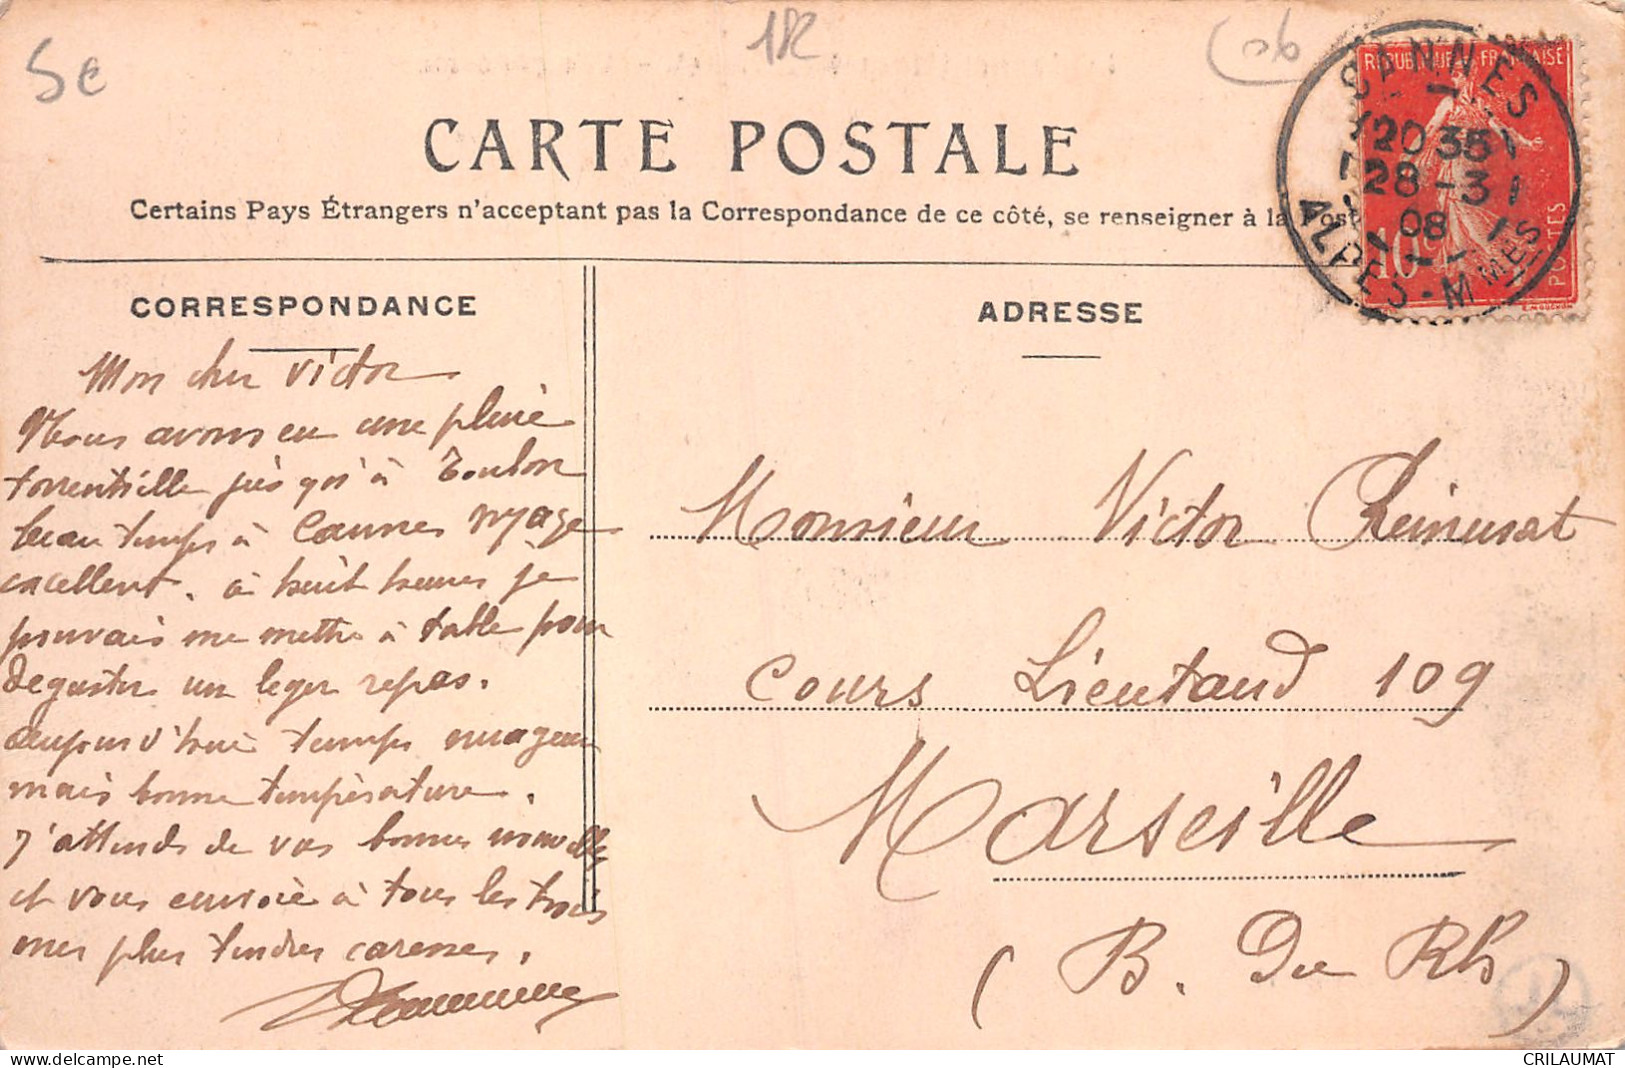 5€
182
06
CARTE POSTALE
Certains Pays Étrangers n'acceptant pas la Correspondance de ce côté, se renseigner à la Post
RÉPUBLIQUE FRANÇAISE
10
POSTES
CANNES
20 35
28 - 3
08
ALPES-MMES
CORRESPONDANCE
ADRESSE
Mon cher Victor
Nous avons eu une pluie
torrentielle jus qu'à Toulon
beau temps à Cannes voyage
excellent. à huit heures je
pouvais me mettre à table pour
deguster un leger repas.
aujourd'hui temps nuageux
mais bonne température.
J'attends de vos bonnes nouvelles
et vous envoie à tous les trois
mes plus tendres caresses.
Monsieur Victor Reimusat
Cours Lieutaud 109
Marseille
(B. Du Rh)
CRILAUMAT